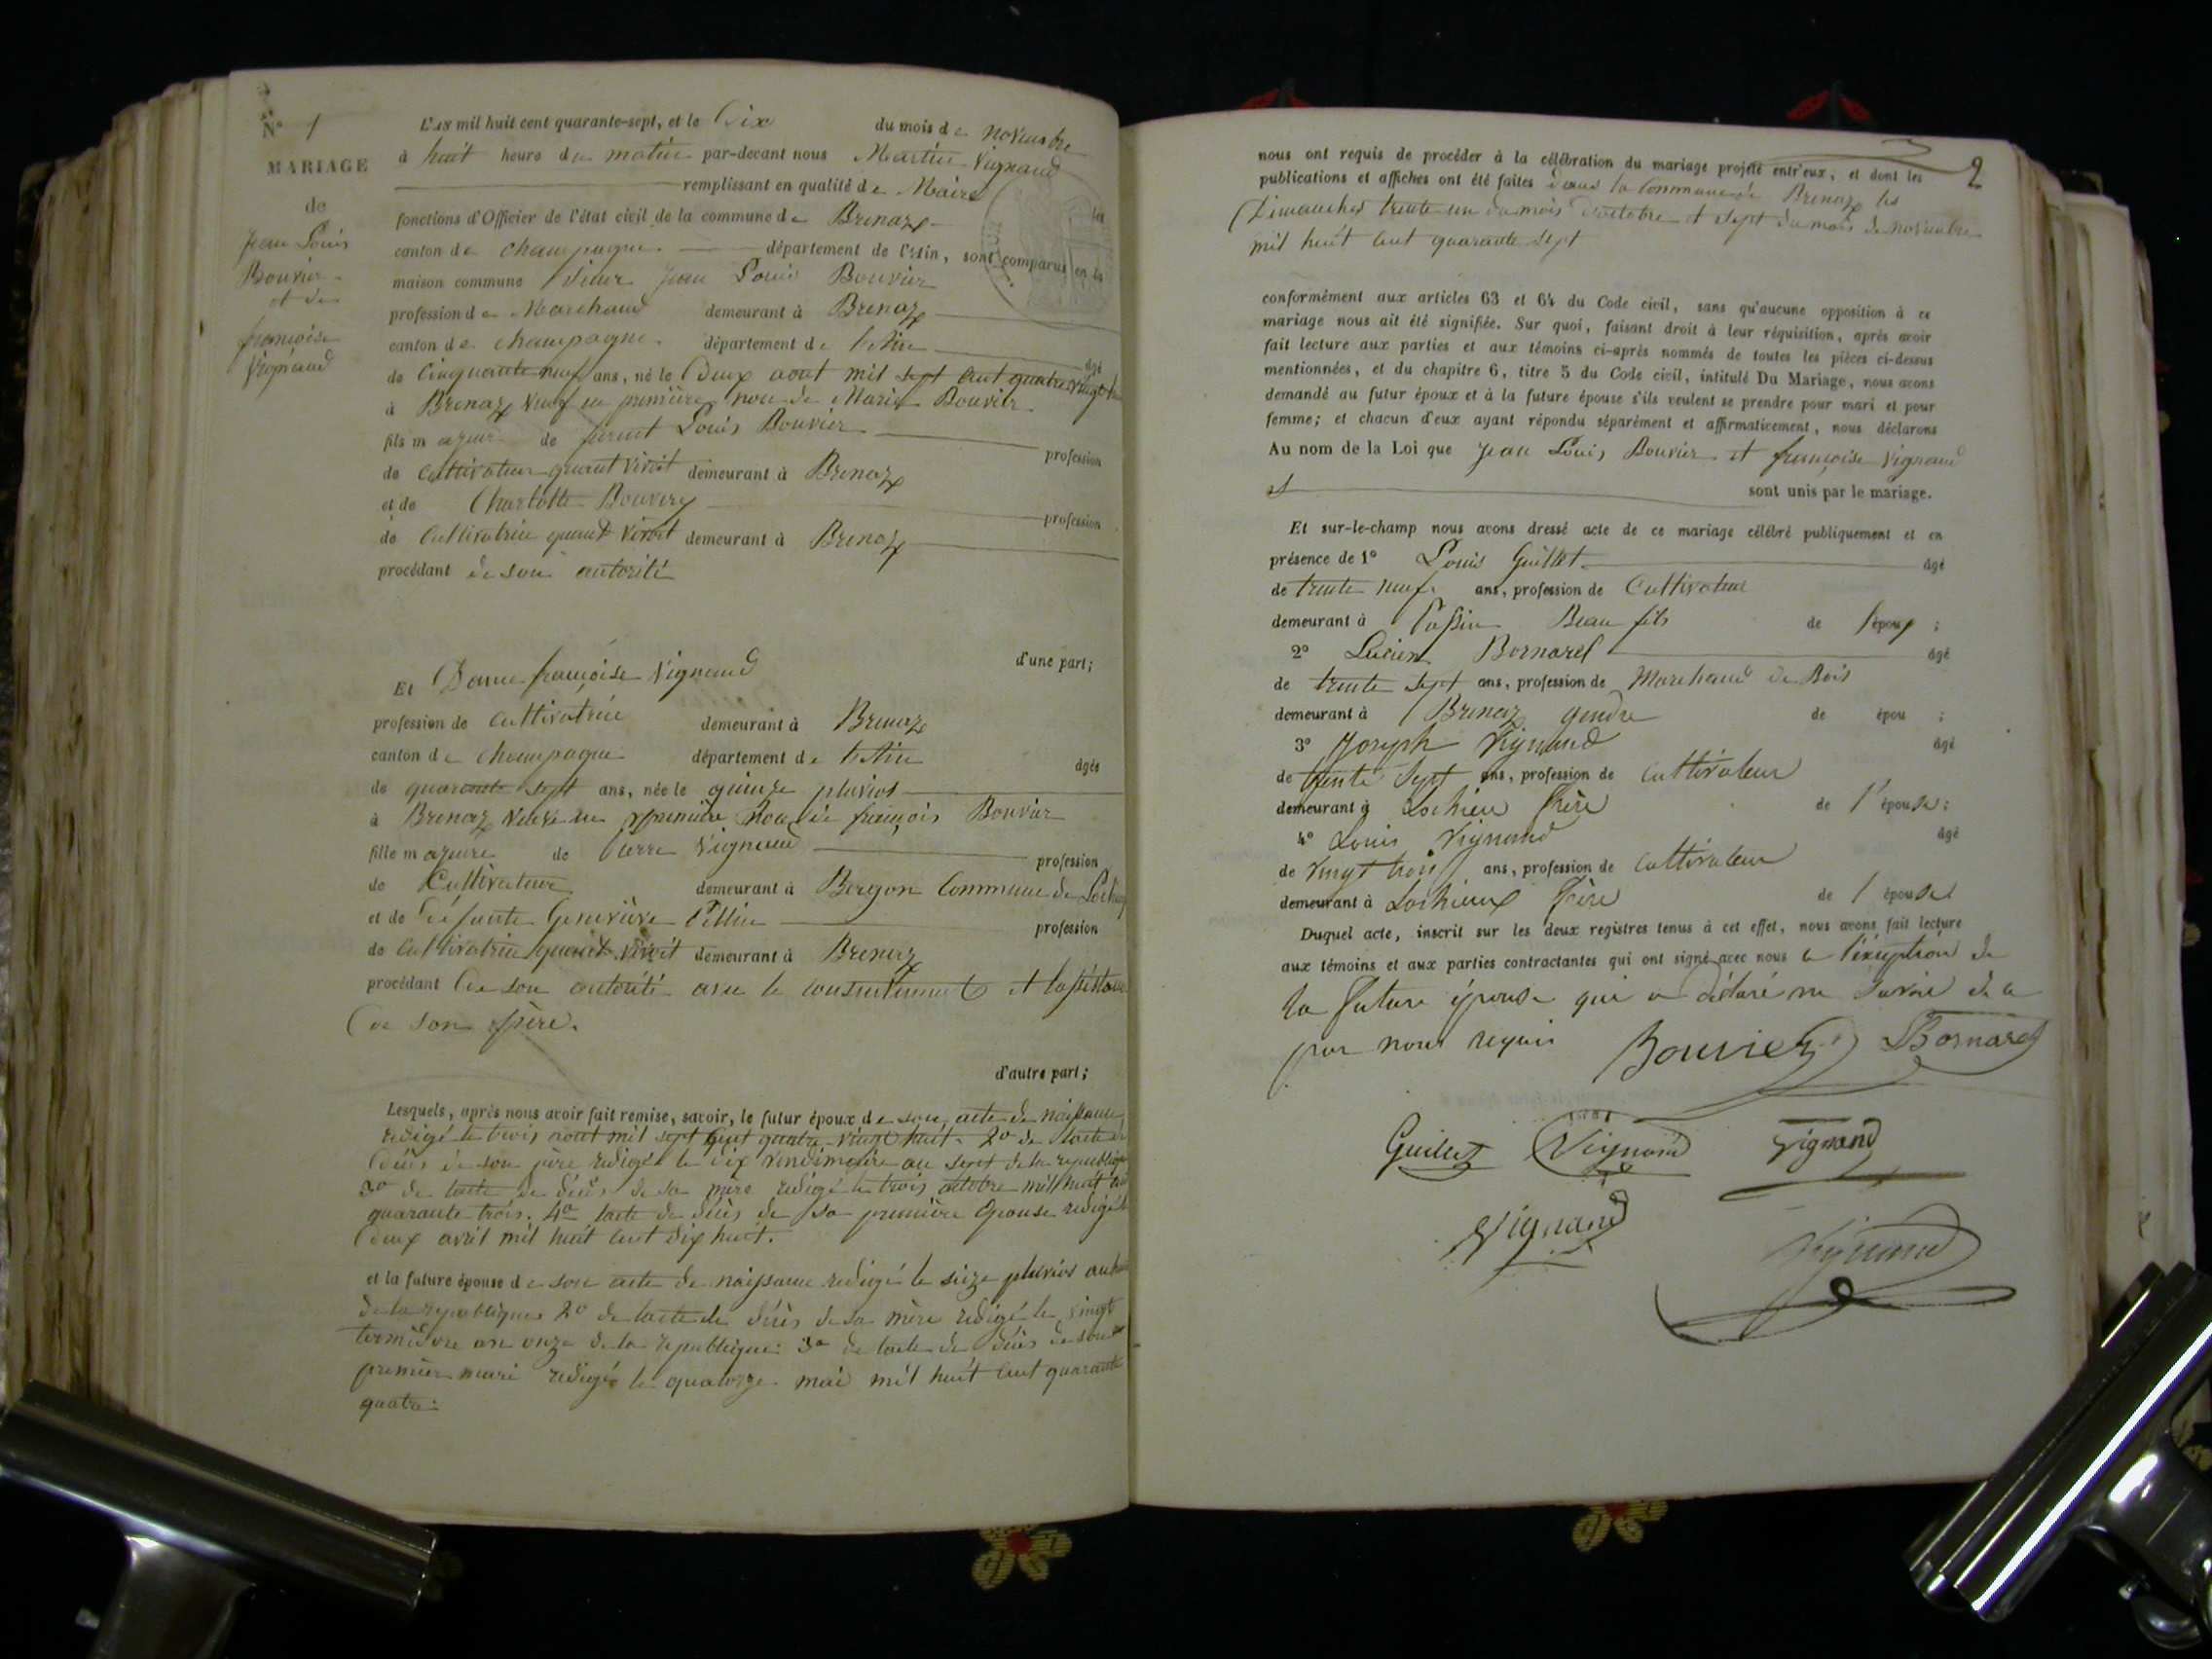 N° 1
MARIAGE
de
Jean Louis
Bouvier
et de
françoise
Vignaud
L'AN mil huit cent quarante-sept, et le Dix du mois de novembre
à huit heure du matin par-devant nous Martin Vignand
remplissant en qualité de Maire les
fonctions d'Officier de l'état civil de la commune de Brenaz
canton de champagne. département de l'Ain, sont comparus en la
maison commune Sieur Jean Louis Bouvier
profession de Marchand demeurant à Brenaz
canton de champagne. département de l'Ain âgé
de Cinquante neuf ans, né le Deux aout mil sept cent quatre vingt
à Brenaz veuf en première nou de Marie Bouvier
fils majeur de furent Louis Bouvier profession
de cultivateur quant vivoit demeurant à Brenaz
et de Charlotte Bouvery profession
de Cultivatrice quant vivoit demeurant à Brenaz
procédant de son autorité
d'une part;
Et Dame françoise Vignaud
profession de cultivatrice demeurant à Brenaz
canton de champagne département de l'Ain âgée
de quarante sept ans, née le quinze pluvios
à Brenaz veuve en première nou de françois Bouvier
fille majeure de Pierre Vignaud profession
de Cultivateur demeurant à Commune de
et de défunte Genevieve profession
de cultivatrice quant vivoit demeurant à Brenaz
procédant De son autorité avec le consentement et
De son père.
d'autre part;
Lesquels, après nous avoir fait remise, savoir, le futur époux de son acte de naissance
redigé le trois aout mil sept cent quatre vingt huit. 2° de l'acte de
Décès de son père redigé le dix vendimaire an sept de la republique
3° de l'acte de décès de sa mère redigé le trois octobre mil huit cent
quarante trois. 4° l'acte de décès de sa première épouse redigé le
Deux avril mil huit cent dix huit.
et la future épouse de son acte de naissance redigé le seize pluvios an
de la republique 2° de l'acte de décès de sa mère redigé le vingt
termidore an onze de la republique: 3° de l'acte de décès de son
premier mari redigé le quatorze mai mil huit cent quarante
quatre:
2
nous ont requis de procéder à la célébration du mariage projeté entr'eux, et dont les
publications et affiches ont été faites dans la Commune de Brenaz les
Dimanches trente un du mois d'octobre et sept du mois de novembre
mil huit cent quarante sept
conformément aux articles 63 et 64 du Code civil, sans qu'aucune opposition à ce
mariage nous ait été signifiée. Sur quoi, faisant droit à leur réquisition, après avoir
fait lecture aux parties et aux témoins ci-après nommés de toutes les pièces ci-dessus
mentionnées, et du chapitre 6, titre 5 du Code civil, intitulé Du Mariage, nous avons
demandé au futur époux et à la future épouse s'ils veulent se prendre pour mari et pour
femme; et chacun d'eux ayant répondu séparément et affirmativement, nous déclarons
Au nom de la Loi que Jean Louis Bouvier et françoise Vignaud
sont unis par le mariage.
Et sur-le-champ nous avons dressé acte de ce mariage célébré publiquement et en
présence de 1° Louis Guillet âgé
de trente neuf ans, profession de Cultivateur
demeurant à Passin Beau fils de l'époux ;
2° Lucien Bornarel âgé
de trente sept ans, profession de Marchand de Bois
demeurant à Brenaz gendre de épou ;
3° Joseph Vignand âgé
de trente sept ans, profession de cultivateur
demeurant à Lochieu frère de l'épouse;
4° Louis Vignand âgé
de vingt trois ans, profession de cultivateur
demeurant à Lochieux frère de l'épouse
Duquel acte, inscrit sur les deux registres tenus à cet effet, nous avons fait lecture
aux témoins et aux parties contractantes qui ont signé avec nous a l'éxception de
la future épouse qui a déclaré ne savoir de ce
par nous requis Bouvier Bornarel
Guillet Vignand Vignand
Vignand
Vignand